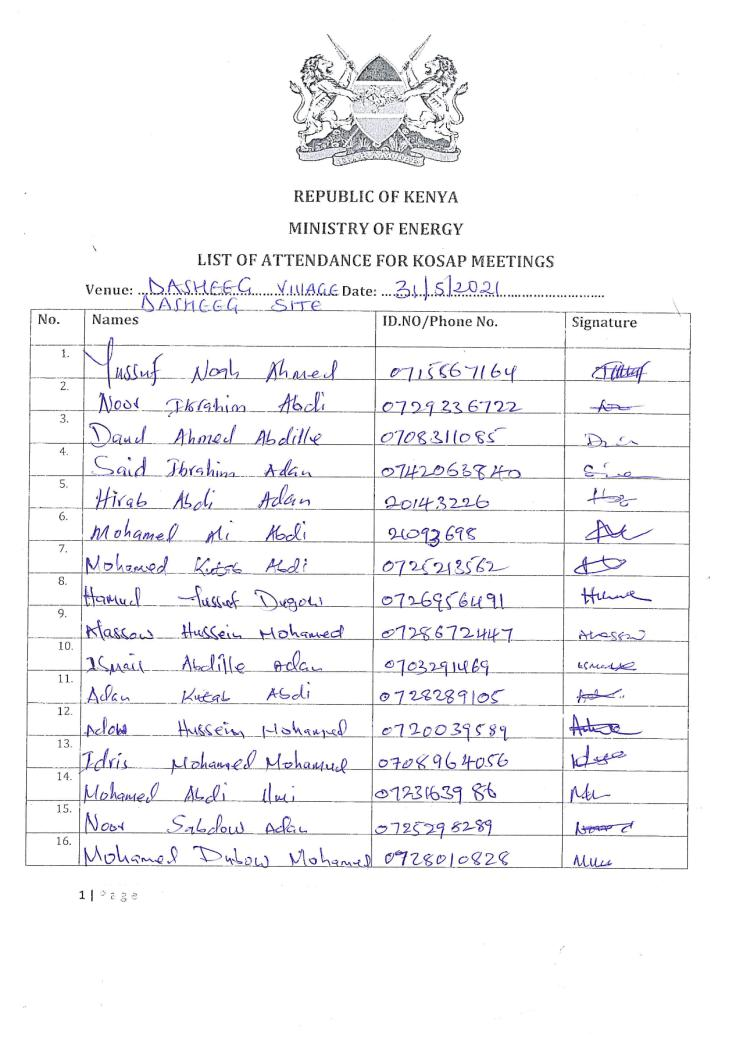 REPUBLIC OF KENYA
MINISTRY OF ENERGY
LIST OF ATTENDANCE FOR KOSAP MEETINGS
Venue: DASHEEG VILLAGE Date: 31/5/2021
DASHEEG SITE
No. Names ID.NO/Phone No. Signature
1. Yussuf Noah Ahmed 0715567164
2. Noor Ibrahim Abdi 0729236722
3. Daud Ahmed Abdille 0708311085
4. Said Ibrahim Adan 0742063840
5. Hirab Abdi Adan 20143226
6. Mohamed Ali Abdi 21093698
7. Mohamed Abdi 0725213562
8. Hamud Yussuf Dugow 0726956491
9. Alassow Hussein Mohamed 0728672447
10. Ismail Abdille Adan 0703291469
11. Adan Abdi 0728289105
12. Adow Hussein Mohamed 0720039589
13. Idris Mohamed Mohamud 0708964056
14. Mohamed Abdi Ilmi 0723163986
15. Noor Sabdow Adan 0725298289
16. Mohamed Dubow Mohamed 0728010828
1 | Page